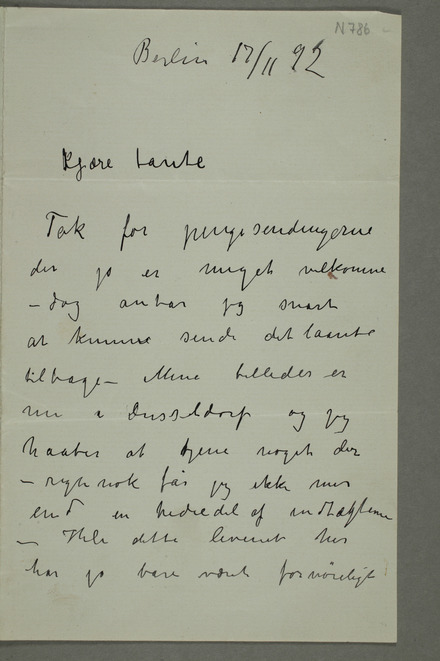 N.786
Berlin 17/11 92
Kjære tante
Tak for pengesendingerne
der jo er meget velkomne
– dog antar jeg snart
at kunne sende det laante
tilbage – Mine billeder er
nu i Dusseldorf og jeg
haaber at tjene noget der
– rigtignok får jeg ikke mer
end en tredjedel af indtægterne
– Hele dette levenet her
har jo bare været fornöieligt